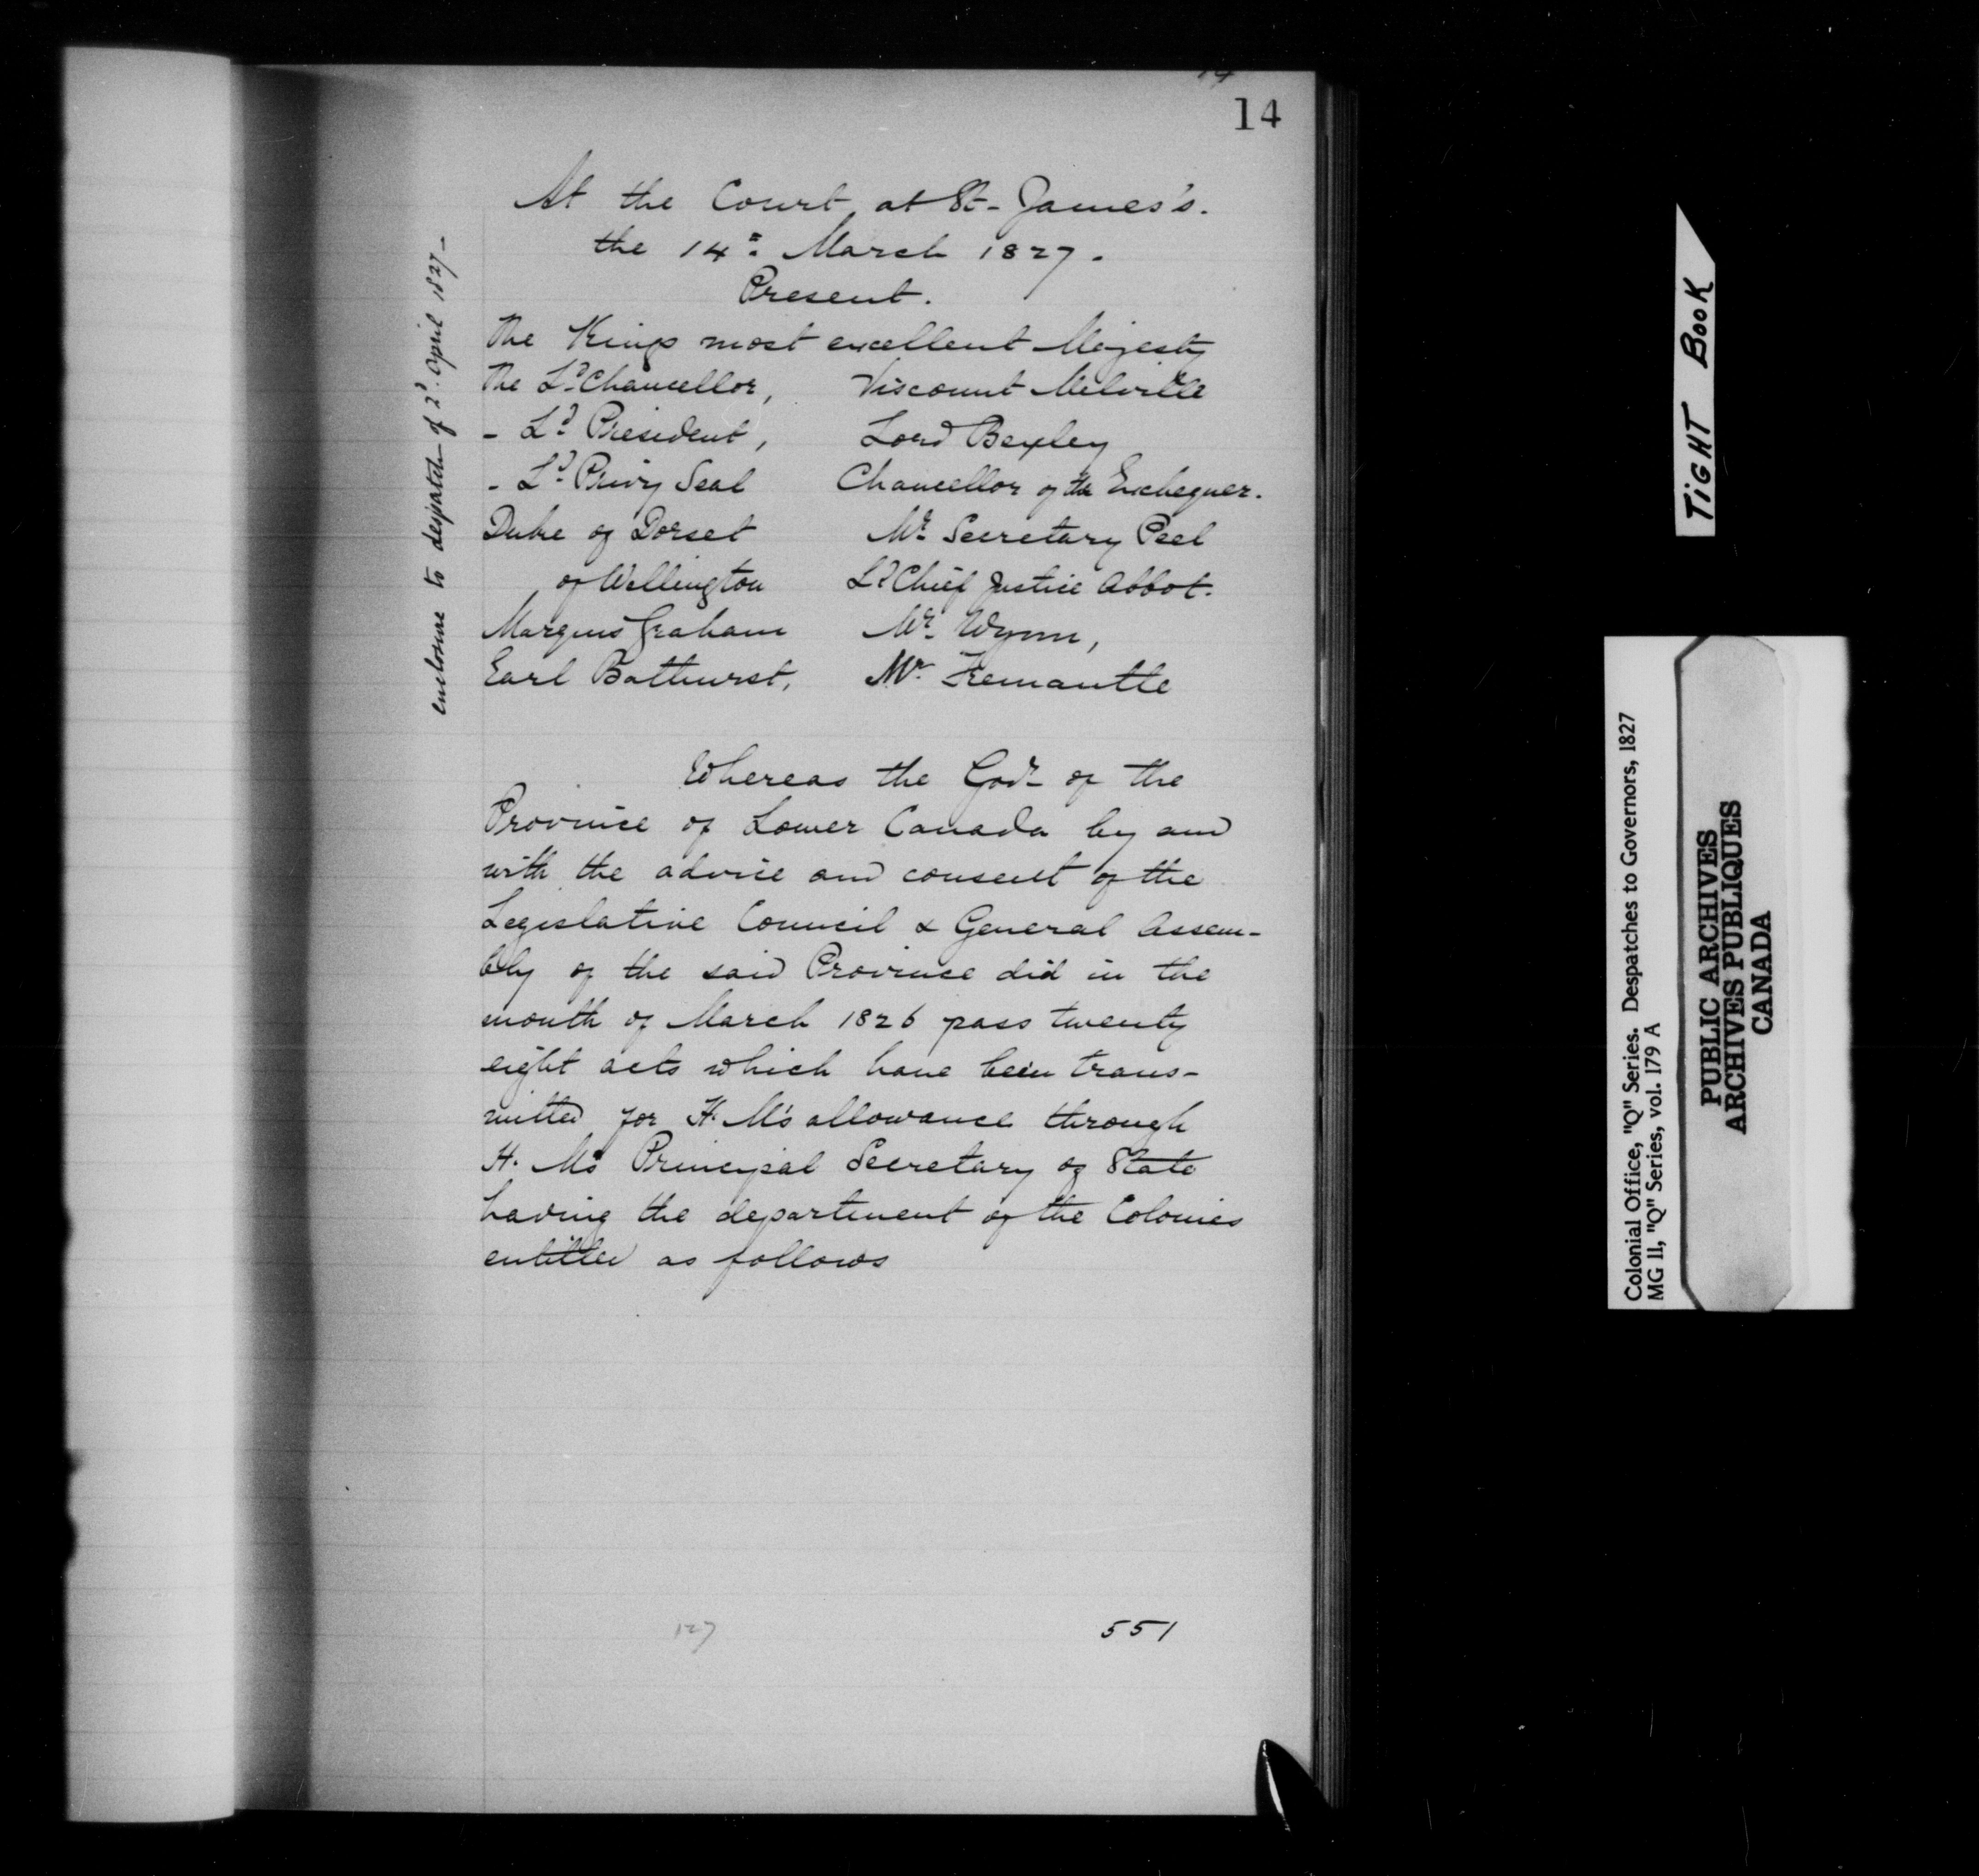 14
14
At the Court at St. James's.
the 14th March 1827.
Present.
The Kings most excellent Majesty
The Ld. Chancellor, Viscount Melville
- Ld. President, Lord Bexley
- Ld. Privy Seal Chancellor of the Exchequer.
Duke of Dorset Mr. Secretary Peel
of Wellington Ld. Chief Justice Abbot.
Marquis Graham Mr. Wynn,
Earl Bathurst, Mr. Fremantle
enclosure to despatch of 2d. April 1827 -
Whereas the Govr. of the
Province of Lower Canada by and
with the advice and consent of the
Legislative Council & General Assem-
bly of the said Province did in the
month of March 1826 pass twenty
eight acts which have been trans-
mitted for H. M's allowance through
H. M's Principal Secretary of State
having the department of the Colonies
entitled as follows
127
551
TIGHT BOOK
Colonial Office, "Q" Series. Despatches to Governors, 1827
MG 11, "Q" Series, vol. 179 A
PUBLIC ARCHIVES
ARCHIVES PUBLIQUES
CANADA